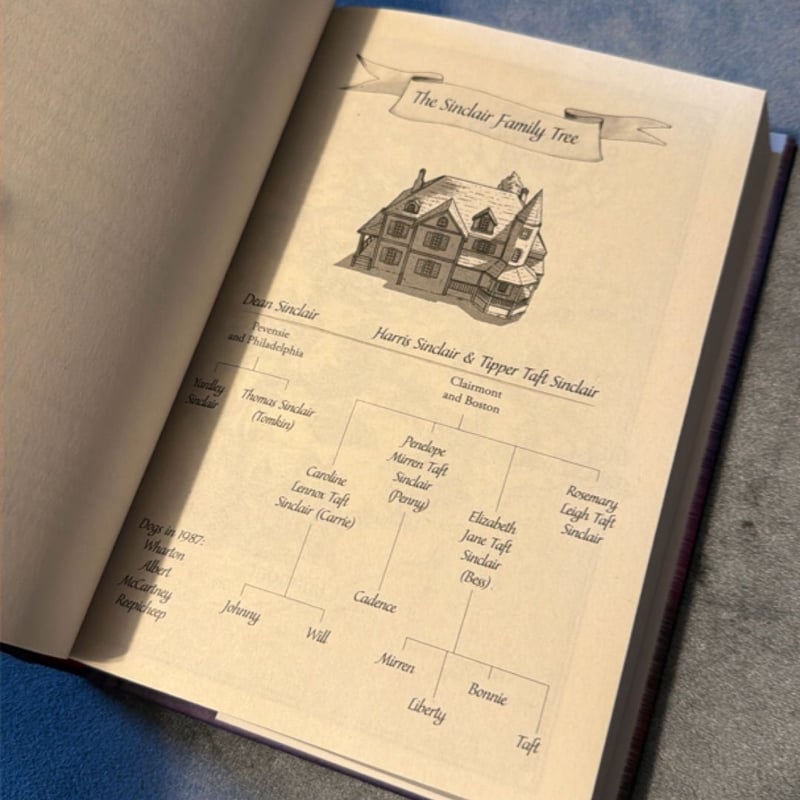 The Sinclair Family Tree
Dean Sinclair
Pevensie
and Philadelphia
Yardley
Sinclair
Thomas Sinclair
(Tomkin)
Harris Sinclair & Tipper Taft Sinclair
Clairmont
and Boston
Caroline
Lennox Taft
Sinclair (Carrie)
Penelope
Mirren Taft
Sinclair
(Penny)
Elizabeth
Jane Taft
Sinclair
(Bess)
Rosemary
Leigh Taft
Sinclair
Johnny
Will
Cadence
Mirren
Liberty
Bonnie
Taft
Dogs in 1987:
Wharton
Albert
McCartney
Reepicheep